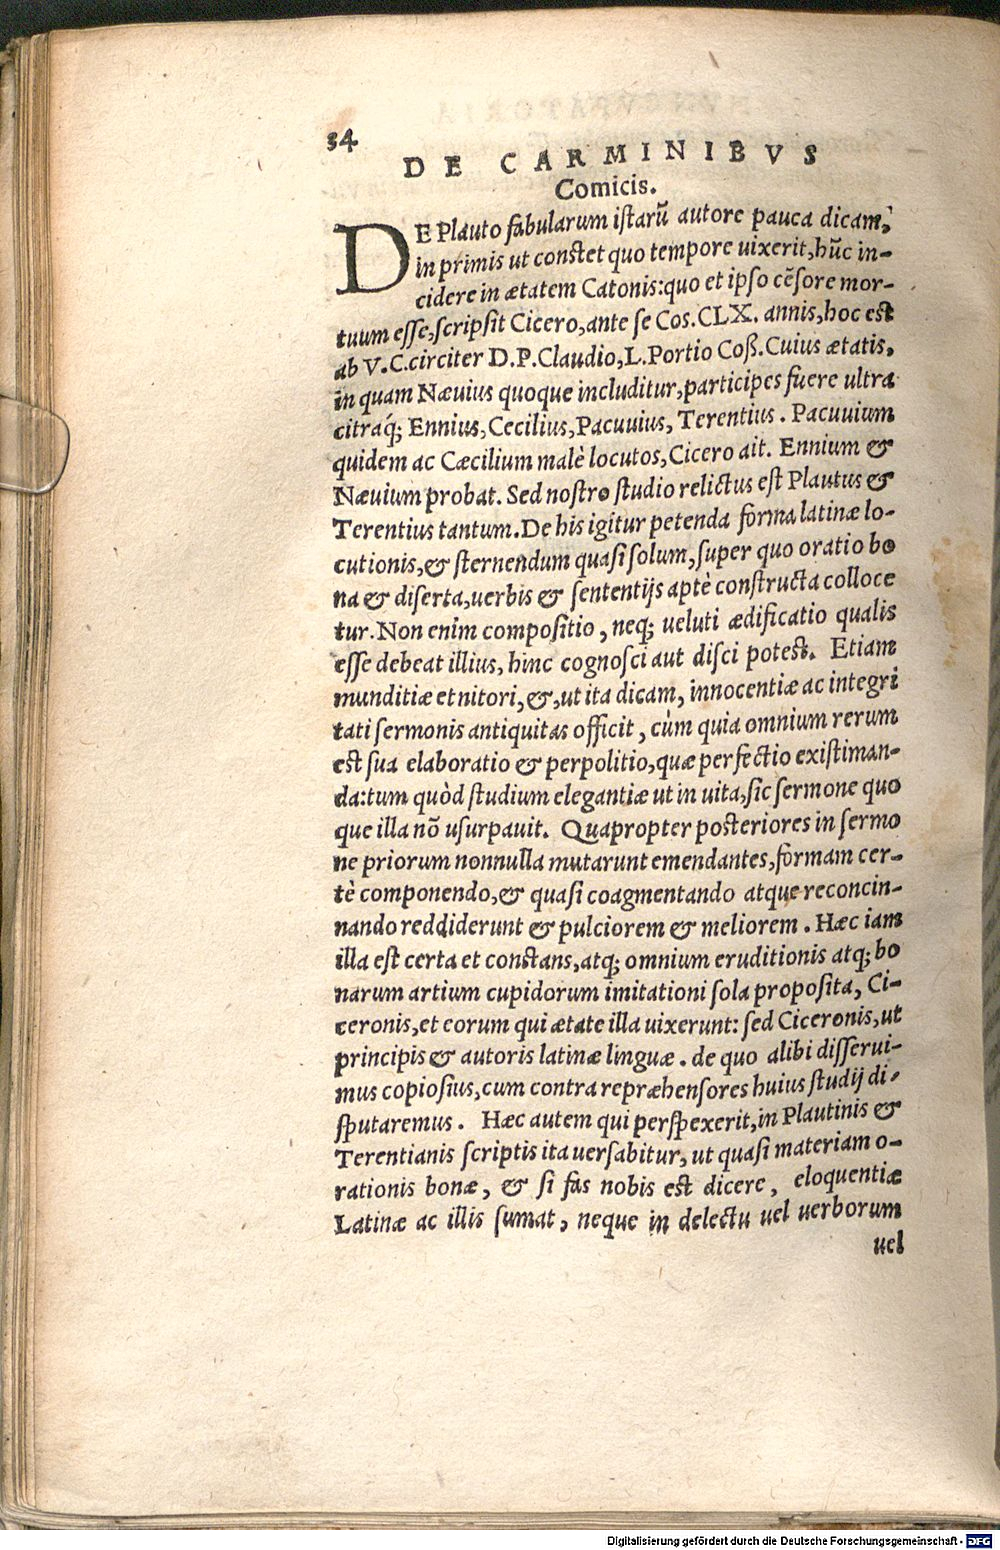 34
DE CARMINIBVS
Comicis.
DE Plauto fabularum istarū autore pauca dicam,
in primis ut constet quo tempore uixerit, hūc in-
cidere in ætatem Catonis: quo et ipso cēsore mor-
tuum esse, scripsit Cicero, ante se Cos. CLX. annis, hoc est
ab V.C. circiter D. P. Claudio, L. Portio Coß. Cuius ætatis,
in quam Næuius quoque includitur, participes fuere ultra
citraq́; Ennius, Cecilius, Pacuuius, Terentius. Pacuuium
quidem ac Cæcilium malè locutos, Cicero ait. Ennium &
Næuium probat. Sed nostro studio relictus est Plautus &
Terentius tantum. De his igitur petenda forma latinæ lo-
cutionis, & sternendum quasi solum, super quo oratio bo
na & diserta, uerbis & sententijs aptè constructa colloce
tur. Non enim compositio, neq; ueluti ædificatio qualis
esse debeat illius, hinc cognosci aut disci potest. Etiam
munditiæ et nitori, &, ut ita dicam, innocentiæ ac integri
tati sermonis antiquitas officit, cùm quia omnium rerum
est sua elaboratio & perpolitio, quæ perfectio existiman-
da: tum quòd studium elegantiæ ut in uita, sic sermone quo
que illa nō usurpauit. Quapropter posteriores in sermo
ne priorum nonnulla mutarunt emendantes, formam cer-
tè componendo, & quasi coagmentando atque reconcin-
nando reddiderunt & pulciorem & meliorem. Hæc iam
illa est certa et constans, atq; omnium eruditionis atq; bo
narum artium cupidorum imitationi sola proposita, Ci-
ceronis, et eorum qui ætate illa uixerunt: sed Ciceronis, ut
principis & autoris latinæ linguæ. de quo alibi disserui-
mus copiosius, cum contra repræhensores huius studij di-
sputaremus. Hæc autem qui perspexerit, in Plautinis &
Terentianis scriptis ita uersabitur, ut quasi materiam o-
rationis bonæ, & si fas nobis est dicere, eloquentiæ
Latinæ ac illis sumat, neque in delectu uel uerborum
uel
Digitalisierung gefördert durch die Deutsche Forschungsgemeinschaft - DFG